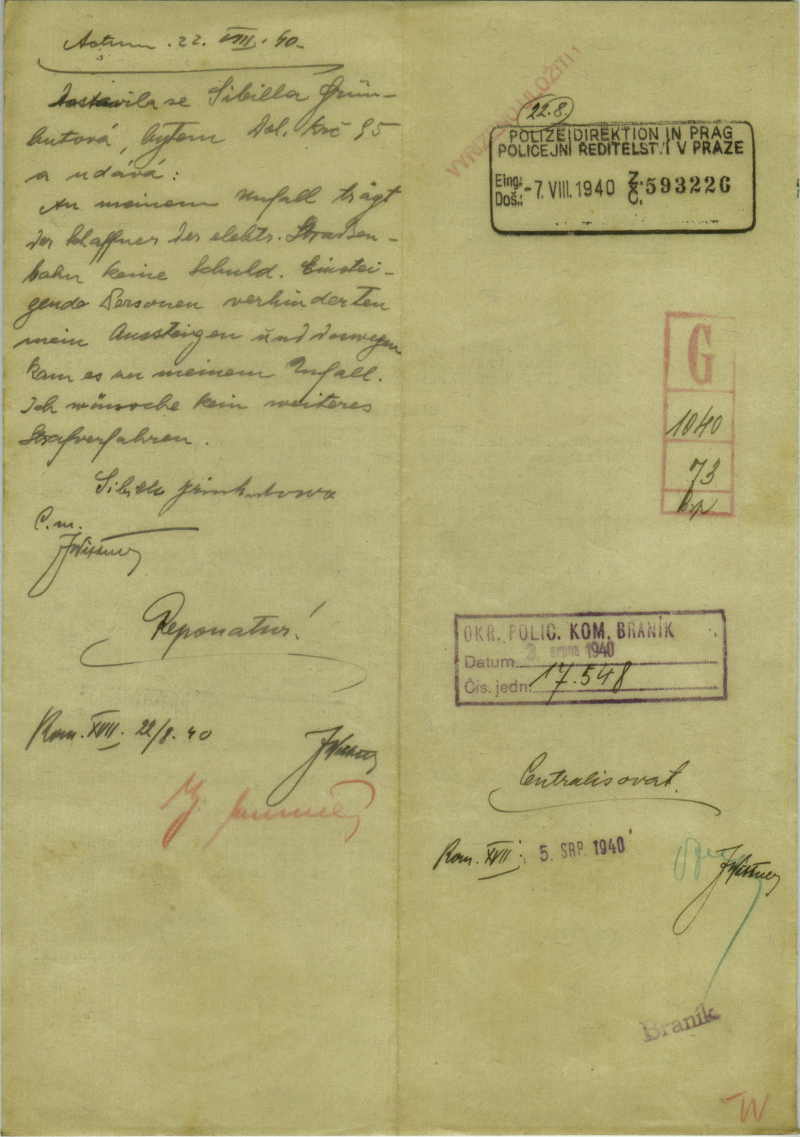 Actum . 22. VIII. 40.
Dostavila se Sibilla Grün-
hutová, bytem Dol. Krč 95
a udává:
An meinem Unfall trägt
der Schaffner der elektr. Strassen-
bahn keine Schuld. Einstei-
gende Personen verhinderten
mein Aussteigen und deswegen
kam es zu meinem Unfall.
Ich wünsche kein weiteres
Strafverfahren.
C. m.
Reponatur!
Kom. XVII. 22/8. 40
22.8
POLIZEIDIREKTION IN PRAG
POLICEJNÍ ŘEDITELSTVÍ V PRAZE
Eing.:
Doš.: -7. VIII. 1940 Z. Č. 593226
G
1040
73
OKR. POLIC. KOM. BRANÍK
Datum 3. srpna 1940
Čís. jedn. 17.548
Centralisovat.
Kom. XVII. 5. SRP. 1940
Braník